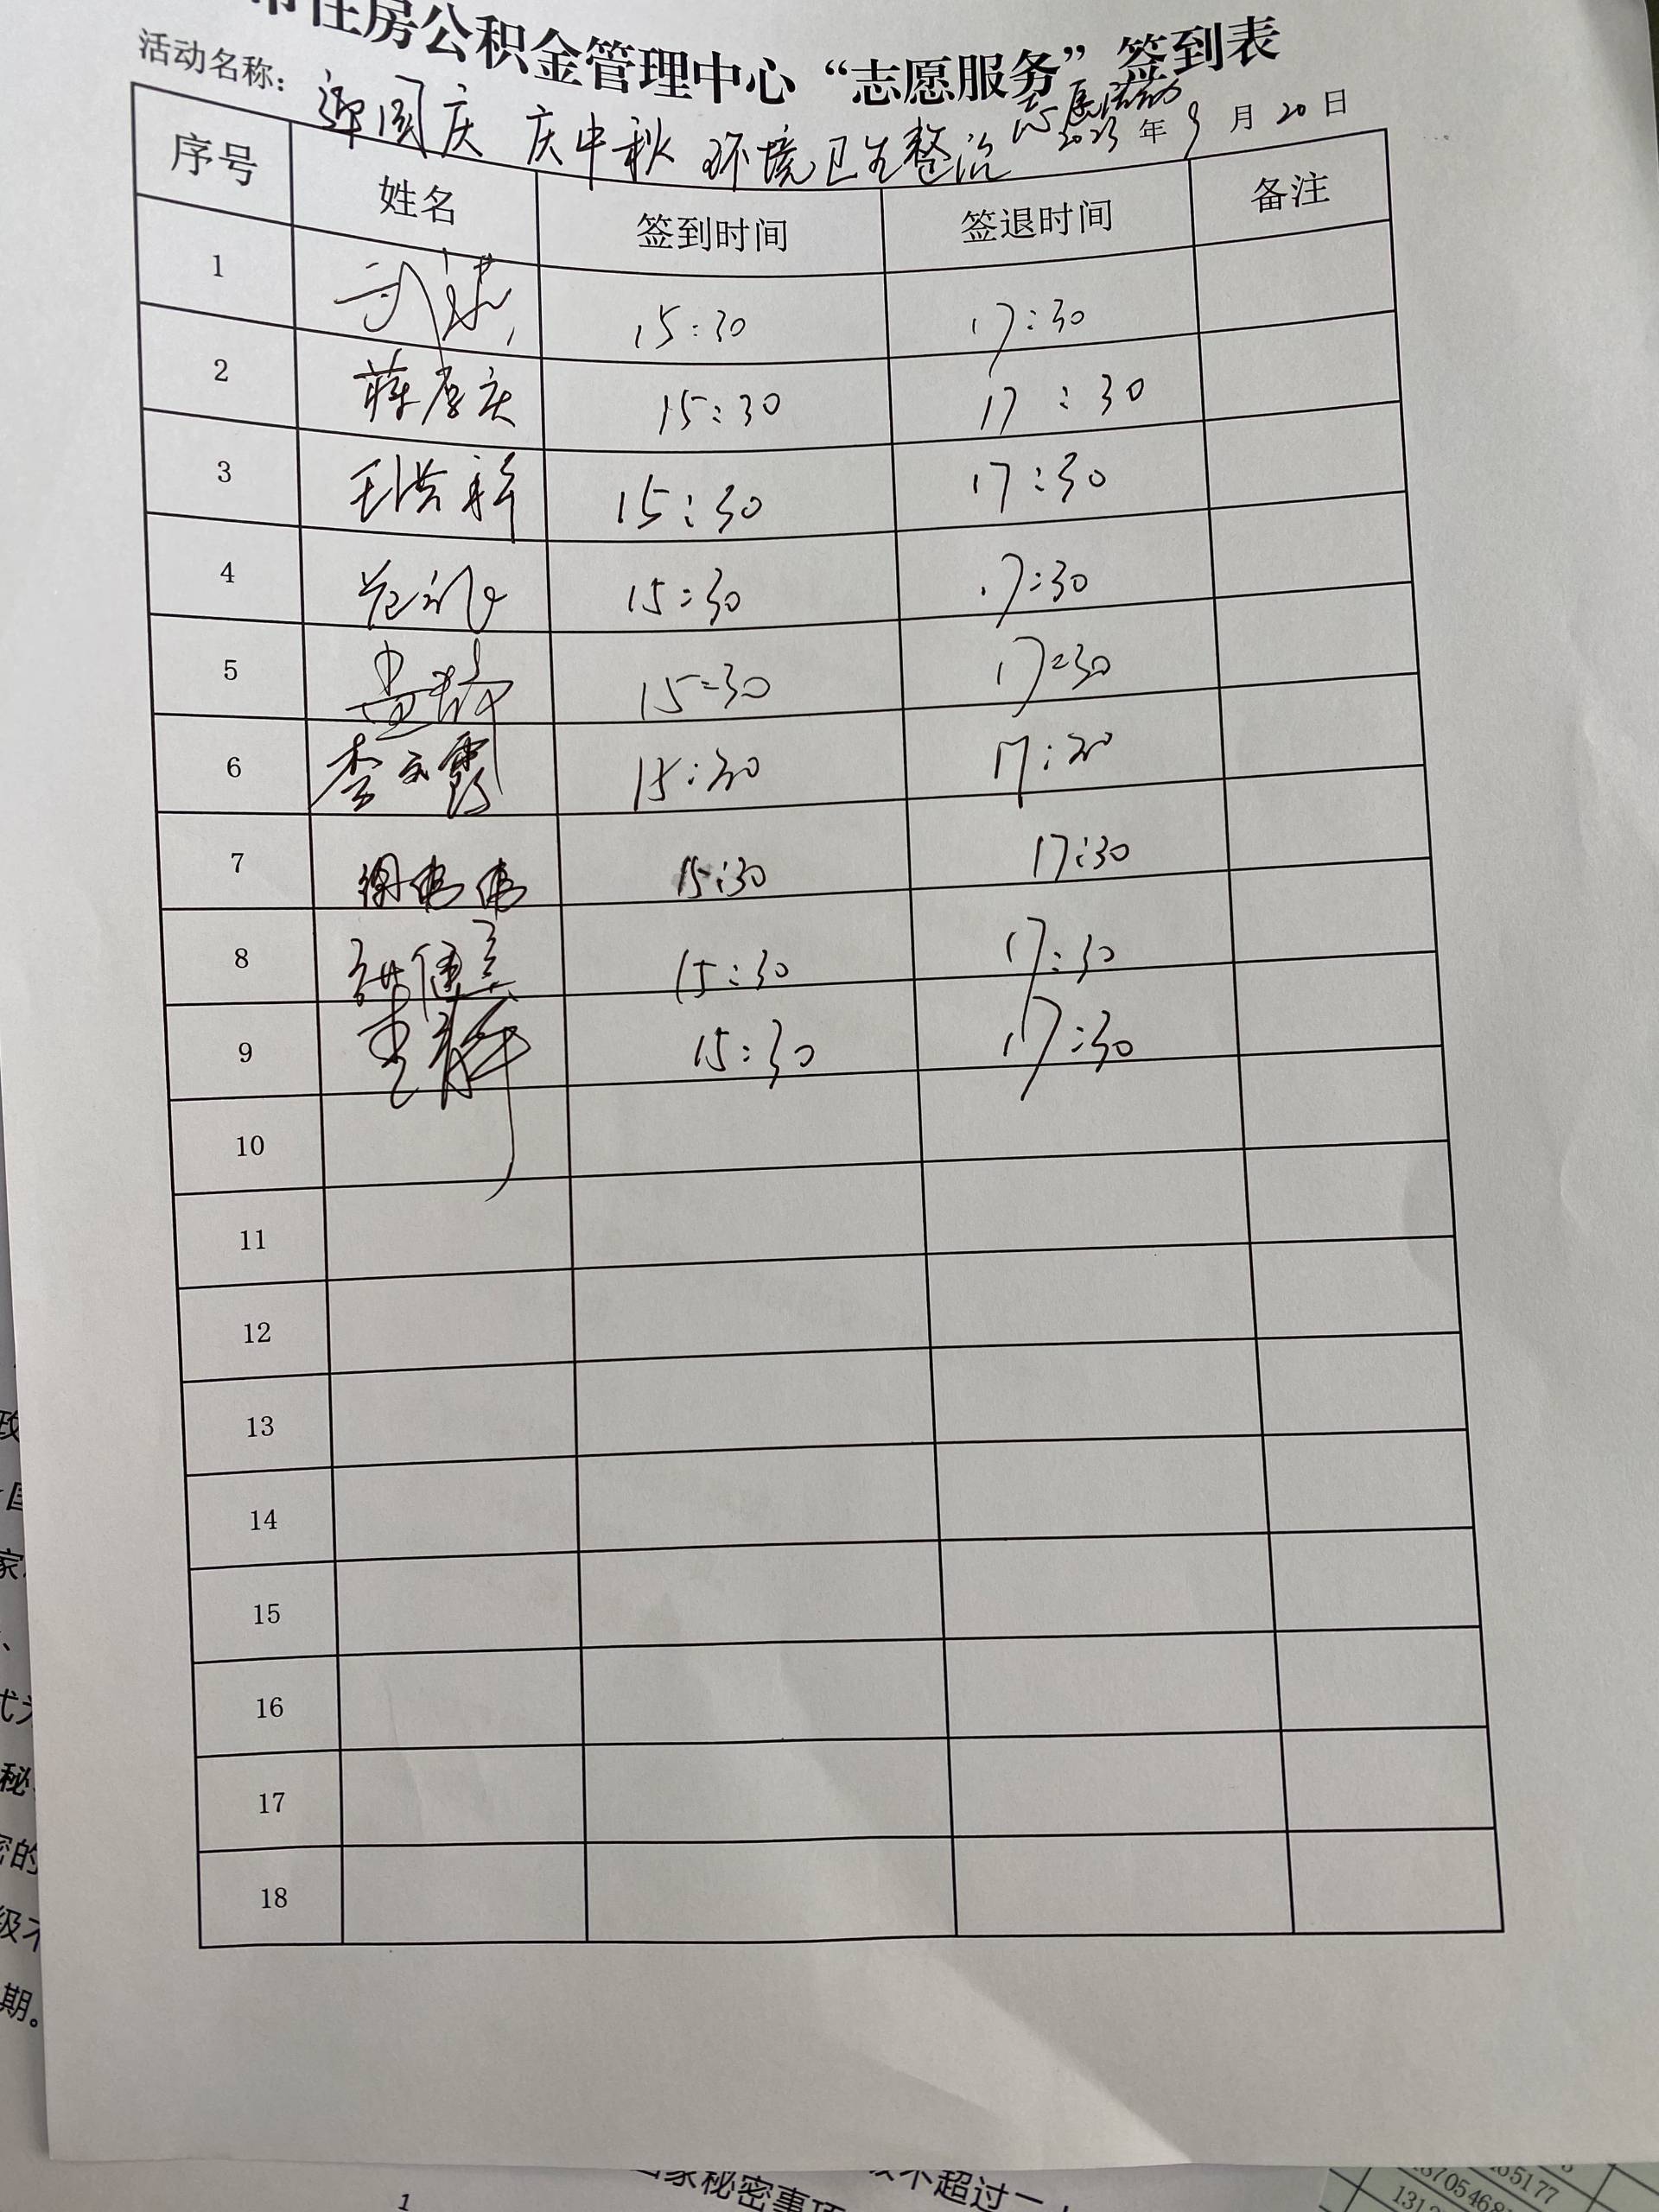 市住房公积金管理中心“志愿服务”签到表
活动名称：迎国庆 庆中秋 环境卫生整治志愿活动
2023年9月20日
序号 姓名 签到时间 签退时间 备注
1 15:30 17:30
2 蒋厚庆 15:30 17:30
3 15:30 17:30
4 15:30 17:30
5 15:30 17:30
6 李云霞 15:30 17:30
7 15:30 17:30
8 15:30 17:30
9 15:30 17:30
10
11
12
13
14
15
16
17
18
政
家
秘
密的
级不
期。
家秘密事项
不超过一
1